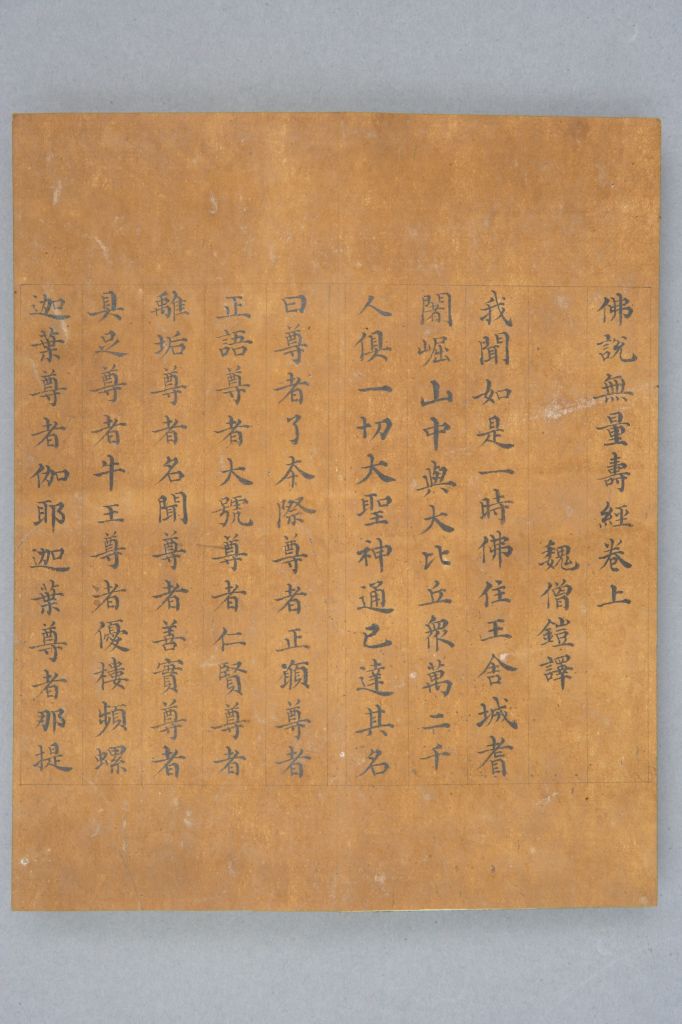 佛說無量壽經卷上
魏僧鎧譯
我聞如是一時佛住王舍城耆
闍崛山中與大比丘眾萬二千
人俱一切大聖神通已達其名
曰尊者了本際尊者正願尊者
正語尊者大號尊者仁賢尊者
離垢尊者名聞尊者善實尊者
具足尊者牛王尊者優樓頻螺
迦葉尊者伽耶迦葉尊者那提